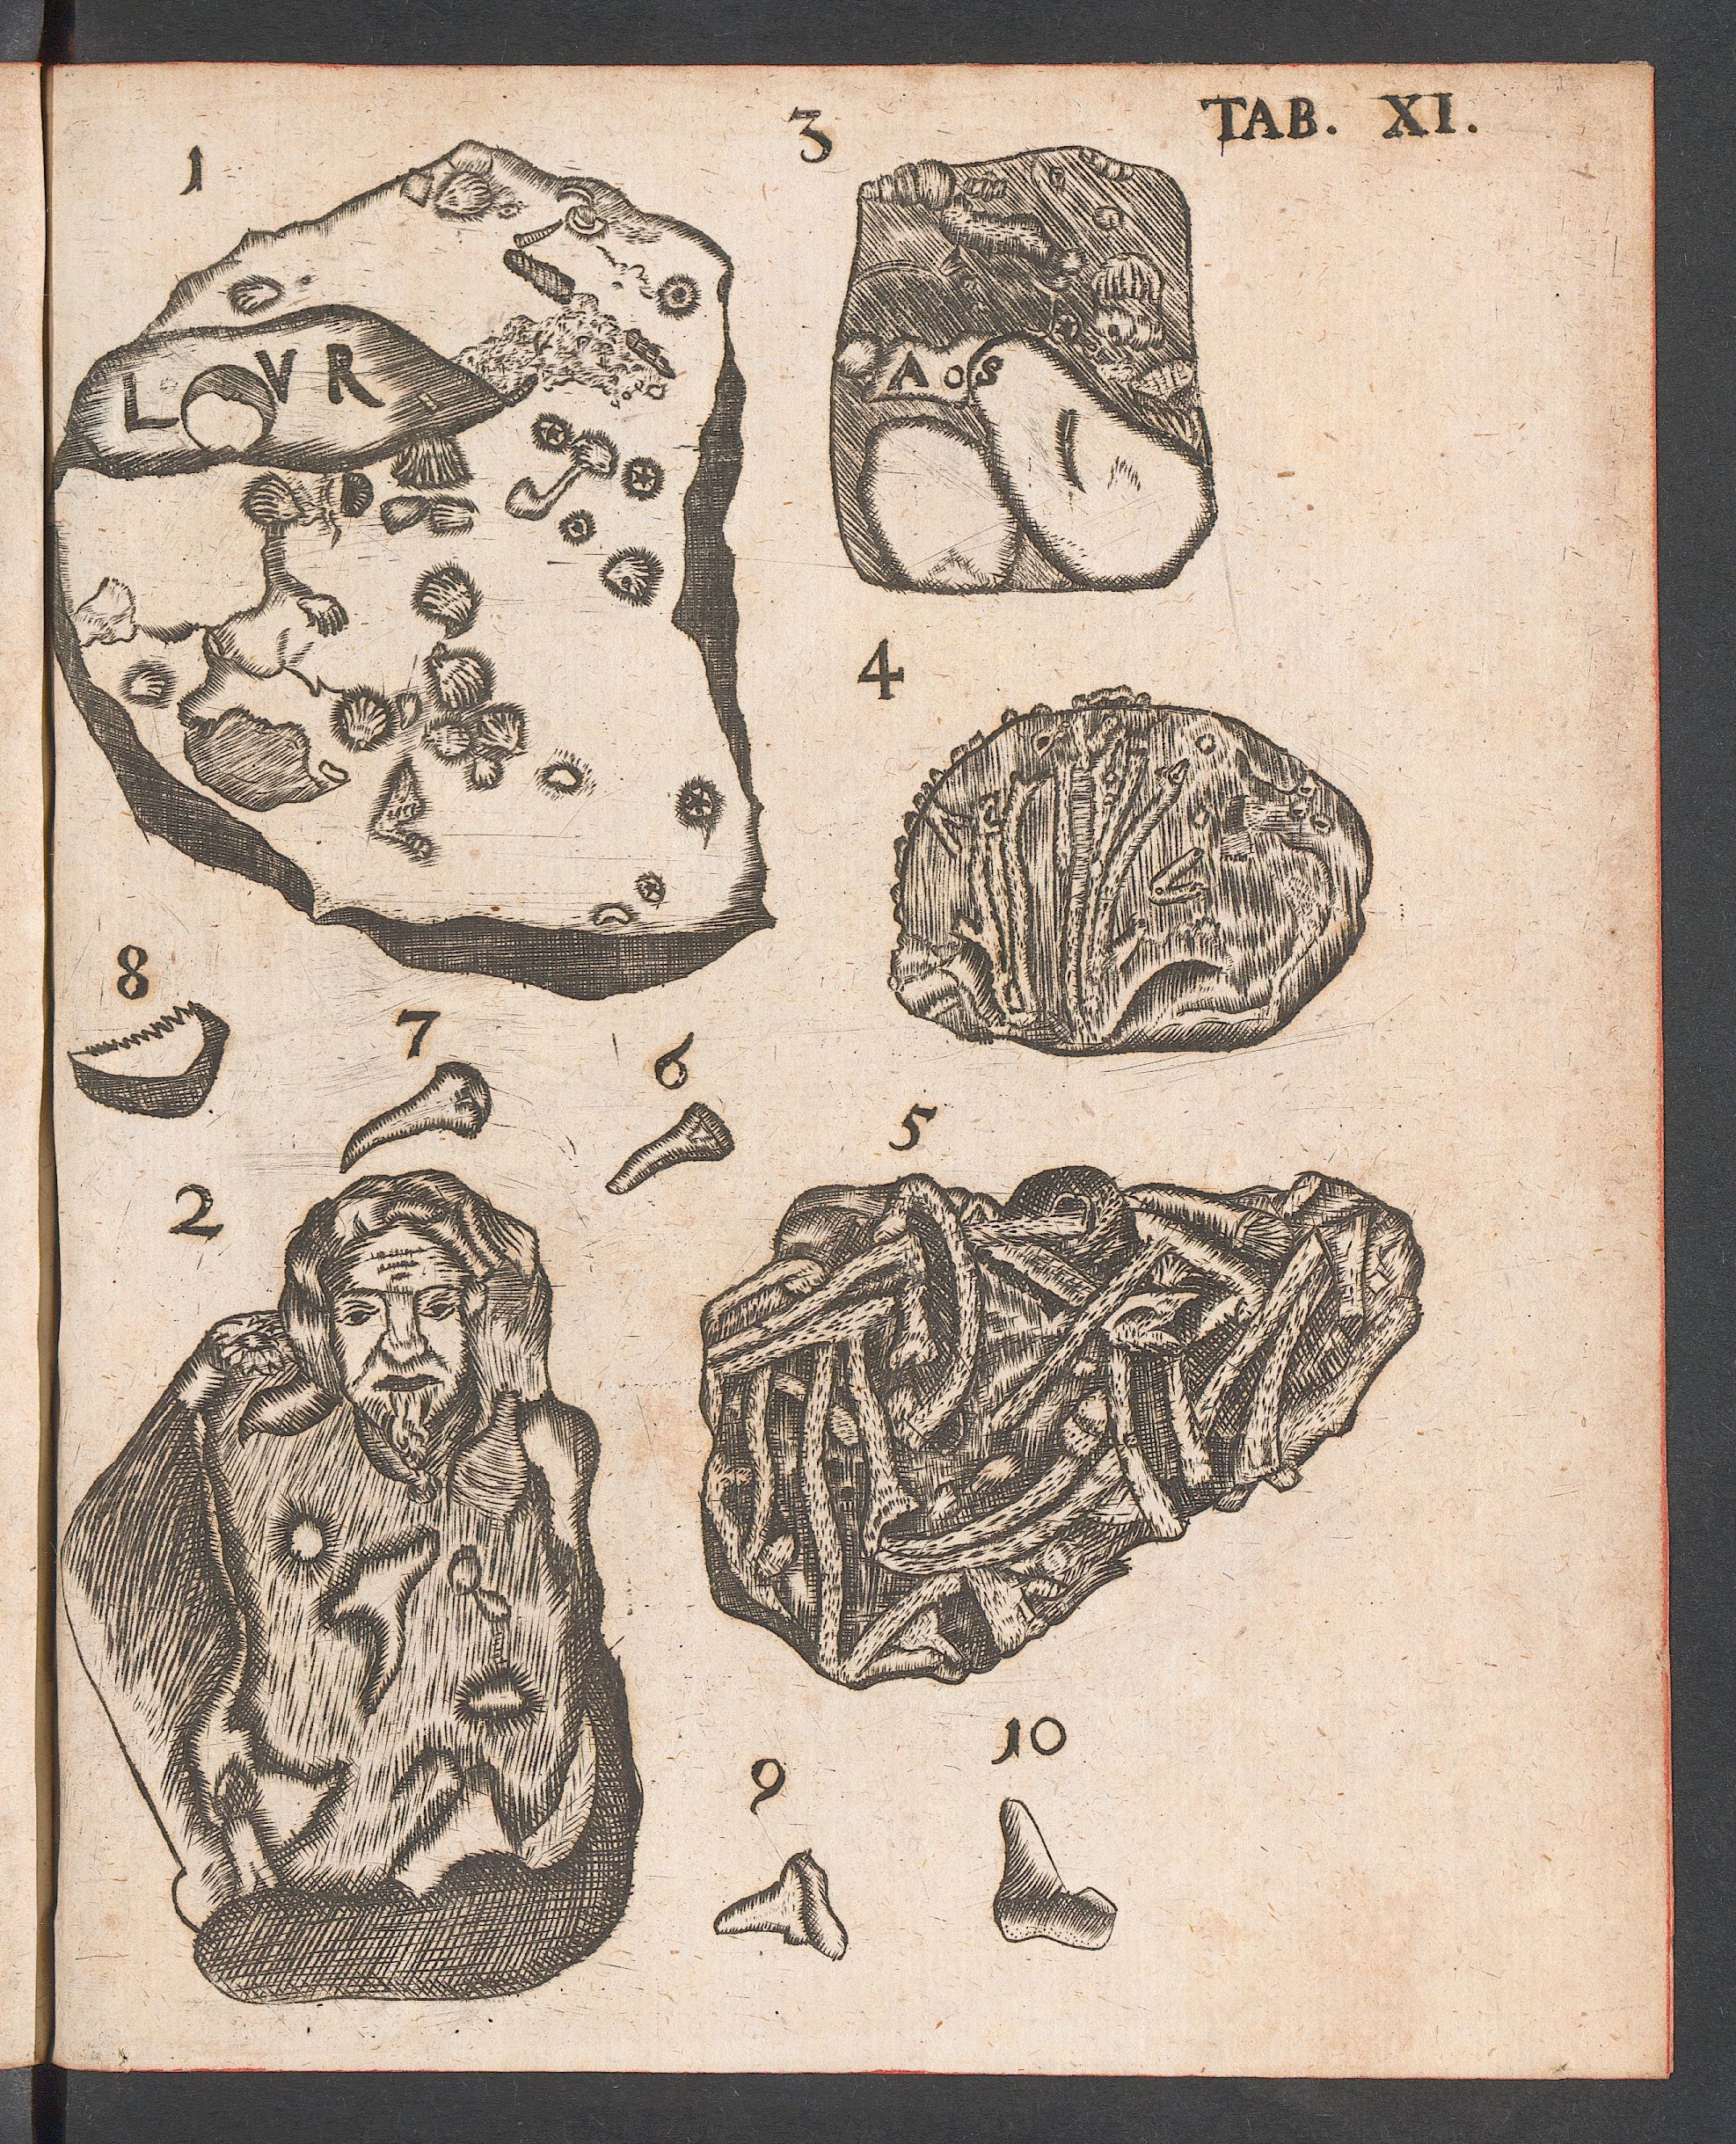 TAB. XI.
1
3
L O V R
A o S
4
8
7
6
5
2
10
9